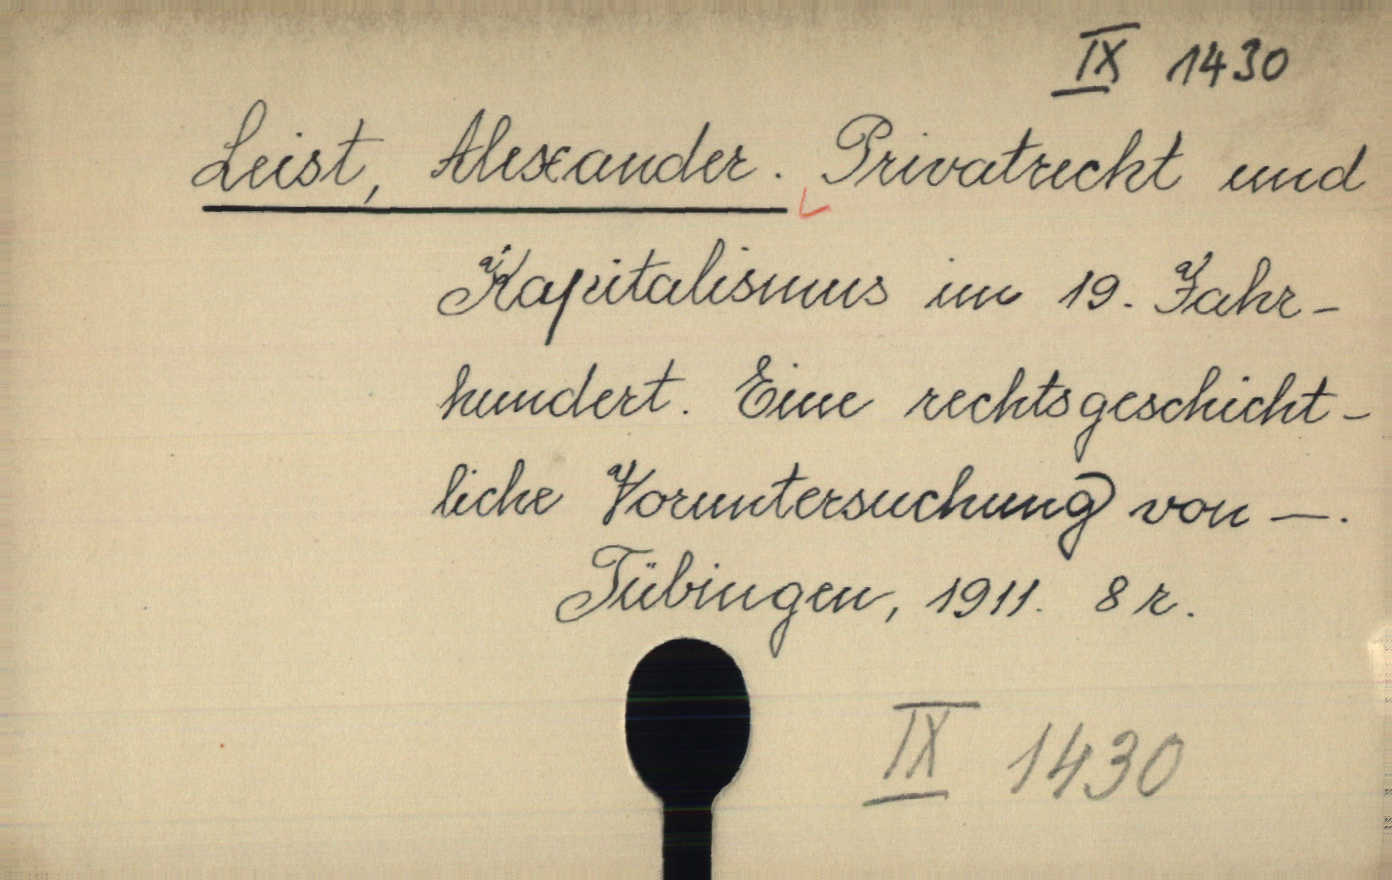 IX 1430
Leist, Alexander. Privatrecht und
Kapitalismus im 19. Jahr-
hundert. Eine rechtsgeschicht-
liche Voruntersuchung von —.
Tübingen, 1911. 8 r.
IX 1430